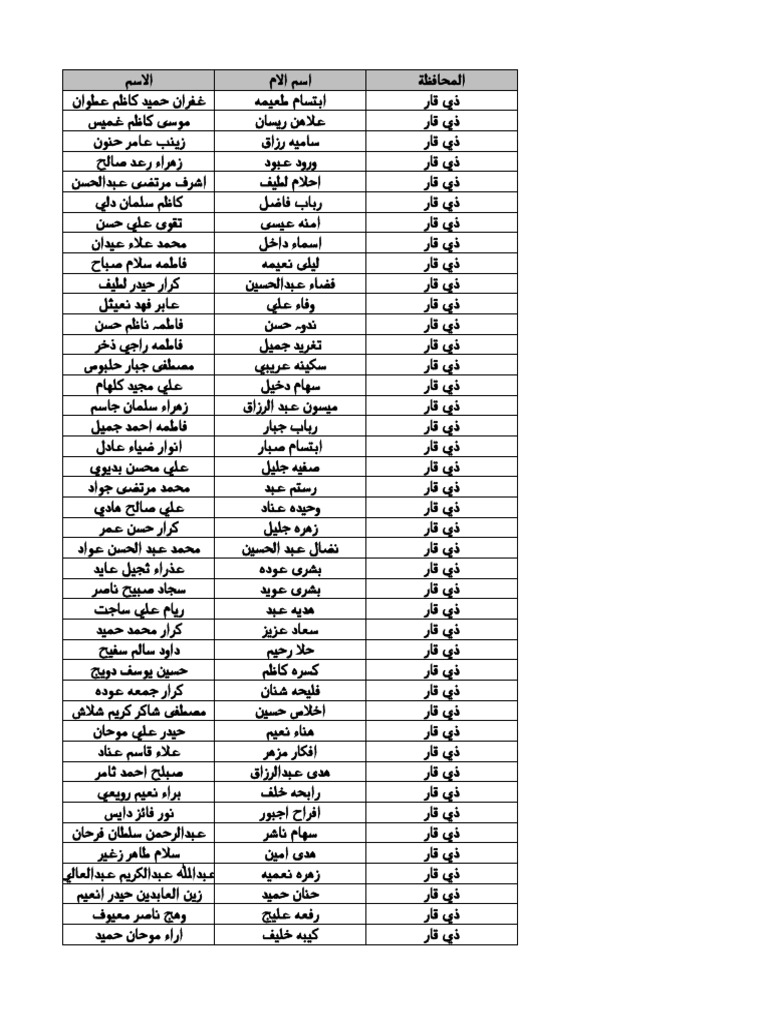 المحافظة اسم الام الاسم
ذي قار ابتسام طعيمه غفران حميد كاظم عطوان
ذي قار علاهن ريسان موسى كاظم غميس
ذي قار ساميه رزاق زينب عامر حنون
ذي قار ورود عبود زهراء رعد صالح
ذي قار احلام لطيف اشرف مرتضى عبدالحسن
ذي قار رباب فاضل كاظم سلمان دلي
ذي قار امنه عيسى تقوى علي حسن
ذي قار اسماء داخل محمد علاء عيدان
ذي قار ليلى نعيمه فاطمه سلام صباح
ذي قار فضاء عبدالحسين كرار حيدر لطيف
ذي قار وفاء علي عابر فهد نعيثل
ذي قار ندوہ حسن فاطمہ ناظم حسن
ذي قار تغريد جميل فاطمه راجي ذخر
ذي قار سكينه عريبي مصطفى جبار حلبوص
ذي قار سهام دخيل علي مجيد كلهام
ذي قار ميسون عبد الرزاق زهراء سلمان جاسم
ذي قار رباب جبار فاطمه احمد جميل
ذي قار ابتسام صبار انوار ضياء عادل
ذي قار صفيه جليل علي محسن بديوي
ذي قار رستم عبد محمد مرتضى جواد
ذي قار وحيده عناد علي صالح هادي
ذي قار زهره جليل كرار حسن عمر
ذي قار نضال عبد الحسين محمد عبد الحسن عواد
ذي قار بشرى عوده عذراء ثجيل عايد
ذي قار بشرى عويد سجاد صبيح ناصر
ذي قار هديه عبد ريام علي ساجت
ذي قار سعاد عزيز كرار محمد حميد
ذي قار حلا رحيم داود سالم سفيح
ذي قار كسره كاظم حسين يوسف دويج
ذي قار فليحه شنان كرار جمعه عوده
ذي قار اخلاص حسين مصطفى شاكر كريم شلاش
ذي قار هناء نعيم حيدر علي موحان
ذي قار افكار مزهر علاء قاسم عناد
ذي قار هدى عبدالرزاق صبلح احمد ثامر
ذي قار رابحه خلف براء نعيم رويعي
ذي قار افراح اجبور نور فائز دايس
ذي قار سهام ناشر عبدالرحمن سلطان فرحان
ذي قار هدى امين سلام طاهر زغير
ذي قار زهره نعميه عبدالله عبدالكريم عبدالعالي
ذي قار حنان حميد زين العابدين حيدر انعيم
ذي قار رفعه عليج وهج ناصر معيوف
ذي قار كيبه خليف اراء موحان حميد